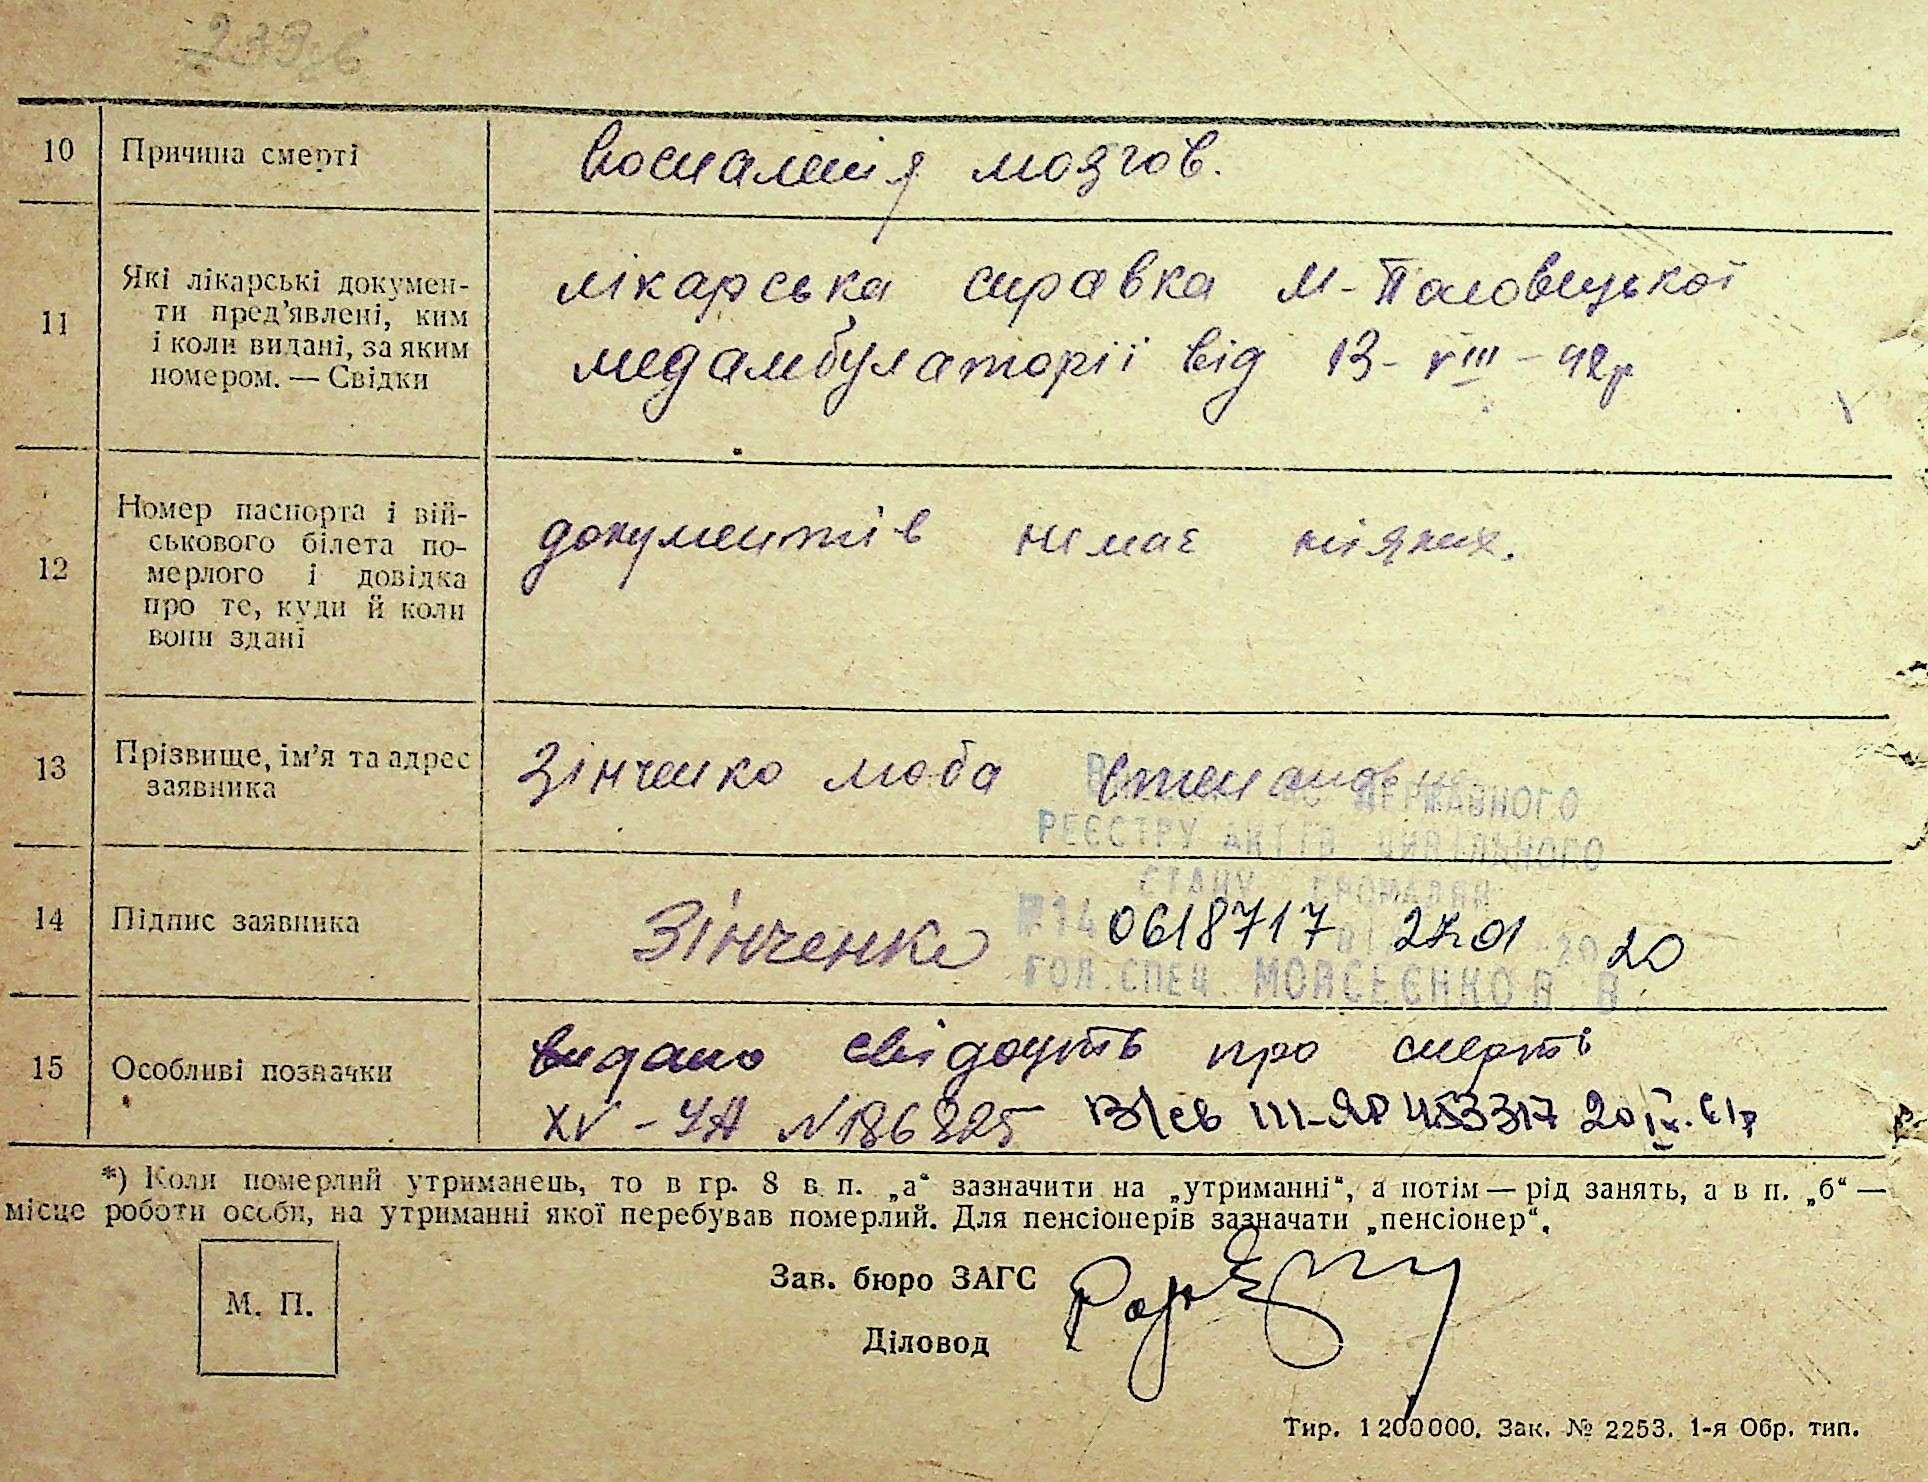 10 Причина смерті воспаленія мозгов.
11 Які лікарські докумен-
ти пред’явлені, ким
і коли видані, за яким
номером. — Свідки
лікарська справка М-Половецької
медамбулаторії від 13-VIII-42р
12 Номер паспорта і вій-
ськового білета по-
мерлого і довідка
про те, куди й коли
вони здані
документів немає ніяких.
13 Прізвище, ім’я та адрес
заявника
Зінченко Люба Степановна
ДЕРЖАВНОГО
РЕЄСТРУ АКТІВ ЦИВІЛЬНОГО
СТАНУ ГРОМАДЯН
14 Підпис заявника Зінченко
№14 0618717 20 20
ГОЛ.СПЕЦ. МОЙСЕЄНКО В.
15 Особливі позначки
видано свідоцтв про смерть
XV-УА N186825 III-ЯР 453317 20 IV. 61р
*) Коли померлий утриманець, то в гр. 8 в п. „а“ зазначити на „утриманні“, а потім — рід занять, а в п. „б“ —
місце роботи особи, на утриманні якої перебував померлий. Для пенсіонерів зазначати „пенсіонер“.
М. П.
Зав. бюро ЗАГС
Діловод
Тир. 1200000. Зак. № 2253. 1-я Обр. тип.